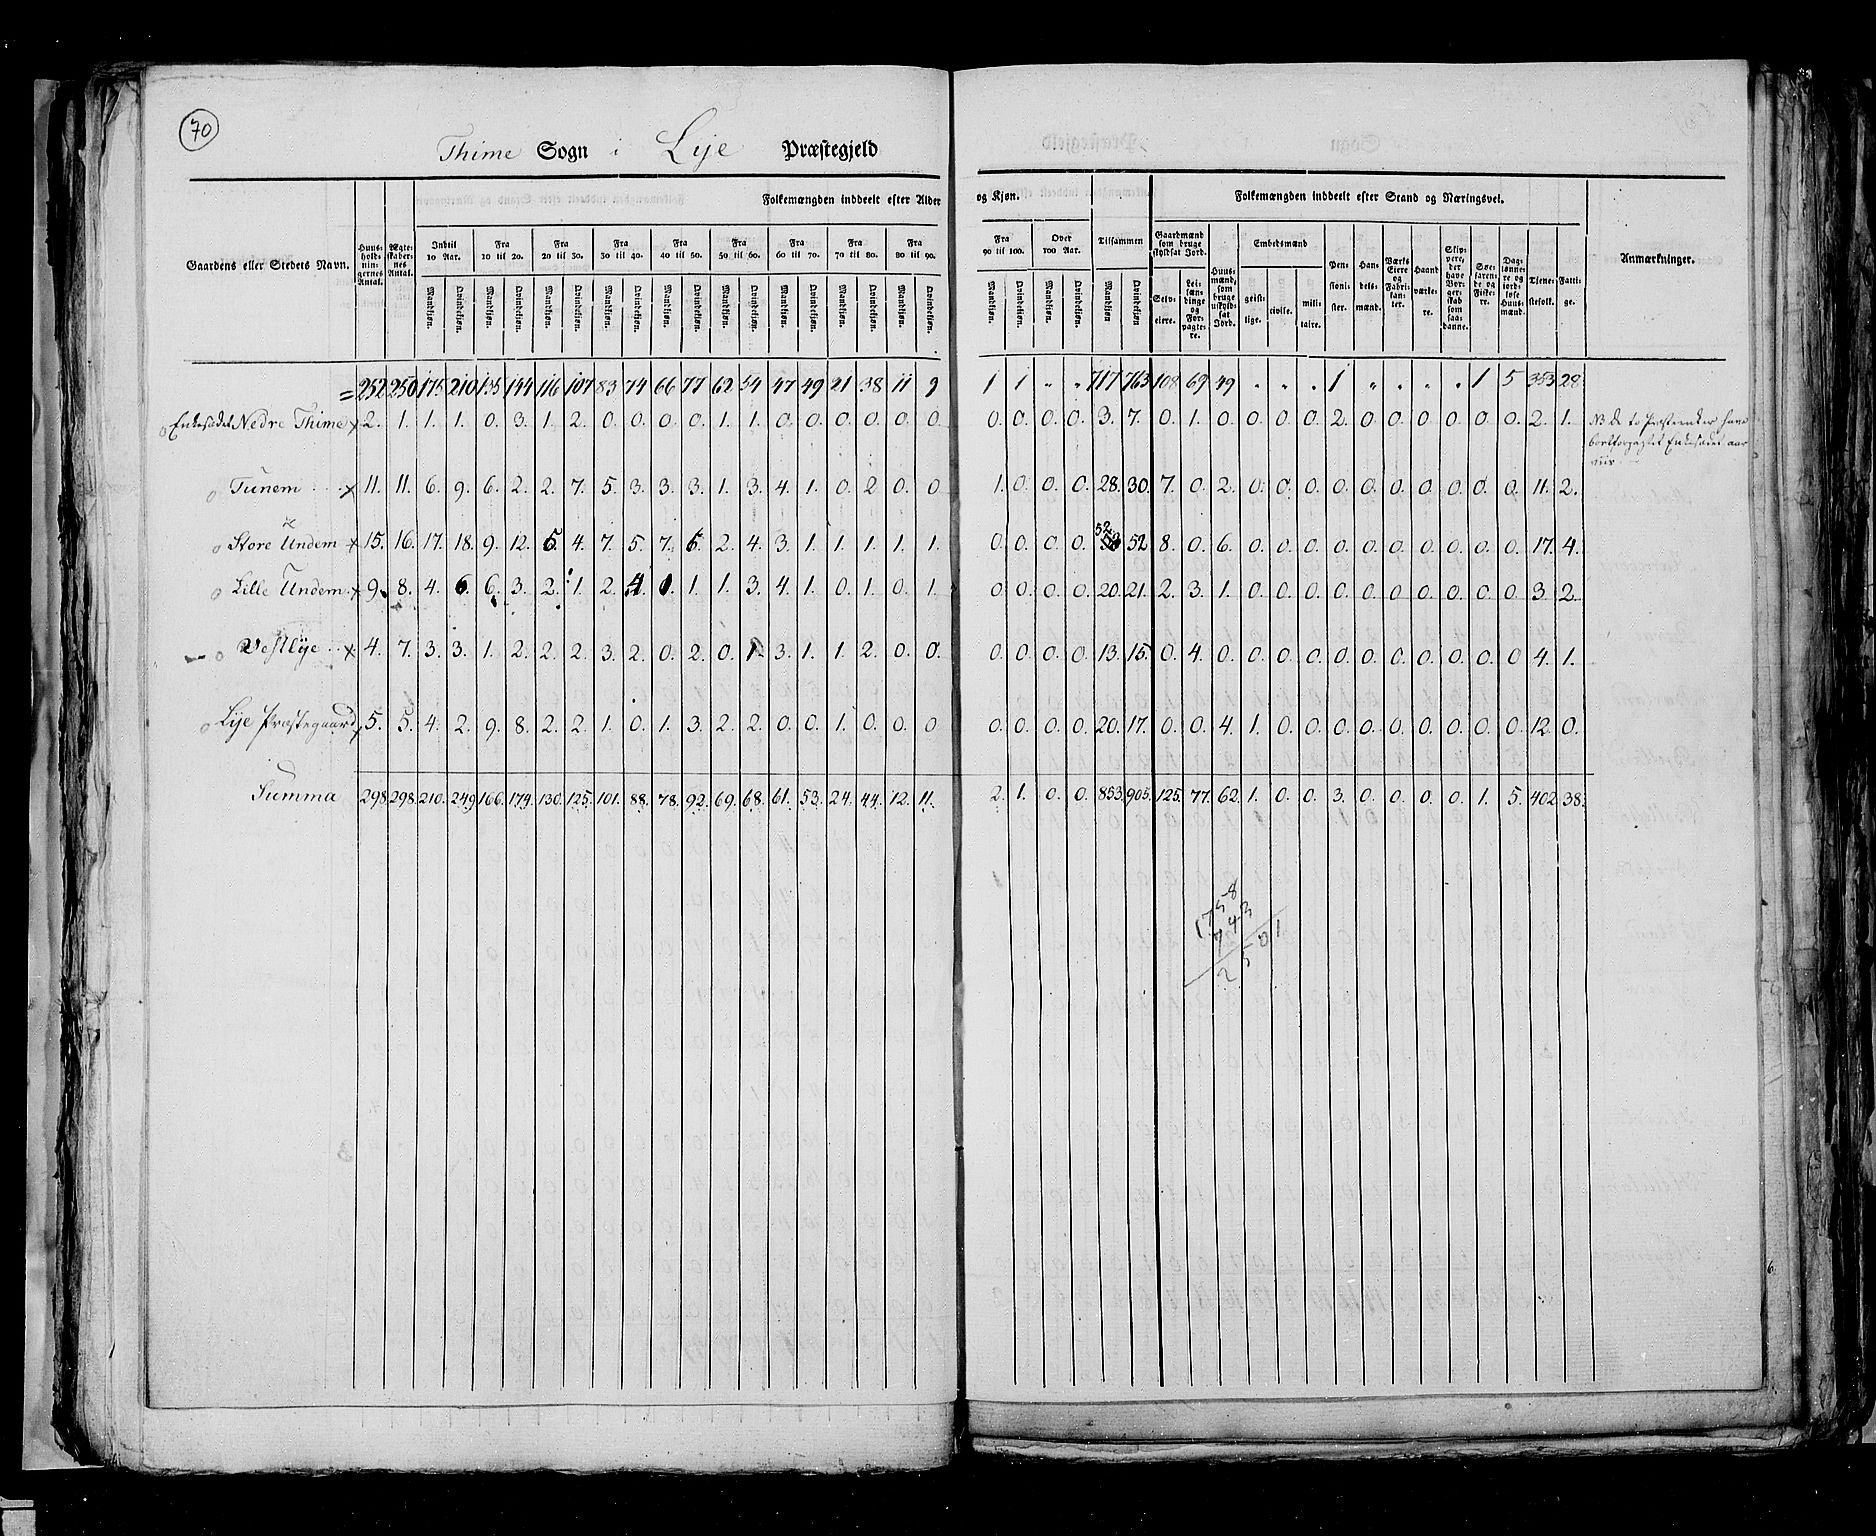 70
Thime Sogn i Lije Præstegjeld
Folkemængden inddeelt efter Alder og Kjøn. Folkemængden inddeelt efter Stand og Næringsvei.
Gaardens eller Stedets Navn. Huusholdningernes Antal. Ægteskabernes Antal. Indtil 10 Aar. Fra 10 til 20. Fra 20 til 30. Fra 30 til 40. Fra 40 til 50. Fra 50 til 60. Fra 60 til 70. Fra 70 til 80. Fra 80 til 90. Fra 90 til 100. Over 100 Aar. Tilsammen Gaardmænd som bruge skyldsat Jord. Huusmænd, som bruge uskyldsat Jord. Embedsmænd Pensionister. Handelsmænd. Værks Eiere og Fabrikanter. Haandværkere. Skippere, der have Borgerskab som saadanne. Søefarende og Fiskere. Dagлønnere og jordløse Huusmænd. Tjenestefolk. Fattige. Anmærkninger.
Mandkjøn. Qvindekjøn. Mandkjøn. Qvindekjøn. Mandkjøn. Qvindekjøn. Mandkjøn. Qvindekjøn. Mandkjøn. Qvindekjøn. Mandkjøn. Qvindekjøn. Mandkjøn. Qvindekjøn. Mandkjøn. Qvindekjøn. Mandkjøn. Qvindekjøn. Mandkjøn. Qvindekjøn. Mandkjøn. Qvindekjøn. Mandkjøn Qvindekjøn Selveiere. Leilændinge og Forpagtere. geistlige. civile. militaire.
= 252 250 175 210 135 144 116 107 83 74 66 77 62 54 47 49 21 38 11 9 1 1 " " 717 763 108 69 49 " " " 1 " " " " 1 5 353 28
Enkesædet Nedre Thime x 2. 1. 1. 1. 0. 3. 1. 2. 0. 0. 0. 0. 1. 1. 0. 0. 0. 0. 0. 0 0. 0. 0. 0. 3. 7. 0. 1. 0. 0. 0. 0. 2. 0. 0. 0. 0. 0. 0. 2. 1. NB de to Præsteenker have
bortforpagtet Enkesædet
Tunem x 11. 11. 6. 9. 6. 2. 2. 7. 5. 3. 3. 3. 1. 3. 4. 1. 0. 2 0. 0 1. 0. 0. 0. 28. 30. 7. 0. 2. 0. 0. 0. 0. 0. 0. 0. 0. 0. 0. 11. 2.
52
Store Undem x 15. 16. 17. 18. 9. 12. 5. 4. 7. 5. 7. 6. 2. 4. 3. 1. 1. 1. 1. 1. 0. 0. 0. 0. 52 8. 0. 6. 0. 0. 0. 0. 0. 0. 0. 0. 0. 0. 17. 4.
Lille Undem x 9. 8. 4. 6. 6. 3. 2. 1. 2. 4. 1. 1. 1. 3. 4. 1. 0. 1. 0. 1. 0. 0. 0. 0. 20. 21. 2. 3. 1. 0. 0. 0. 0. 0. 0. 0. 0. 0. 0. 3. 2.
Vestlije x 4. 7. 3. 3. 1. 2. 2. 2. 3. 2. 0. 2. 0. 1. 3. 1. 1. 2. 0. 0. 0. 0. 0. 0. 13. 15. 0. 4. 0. 0. 0. 0. 0. 0. 0. 0. 0. 0. 0 4. 1.
Lije Præstegaard x 5. 5. 4. 2. 9. 8. 2. 2. 1. 0. 1. 3. 2. 2. 0. 0. 1. 0. 0. 0 0. 0. 0. 0. 20. 17. 0. 0. 4. 1. 0. 0. 0. 0. 0. 0. 0. 0. 0. 12. 0.
Summa 298. 298. 210. 249. 166. 174. 130. 125. 101. 88. 78. 92. 69. 68. 61. 53. 24. 44. 12. 11. 2. 1. 0. 0. 853. 905. 125. 77. 62. 1. 0. 0. 3. 0. 0. 0. 0. 1. 5. 402. 38.
1758
743
2501